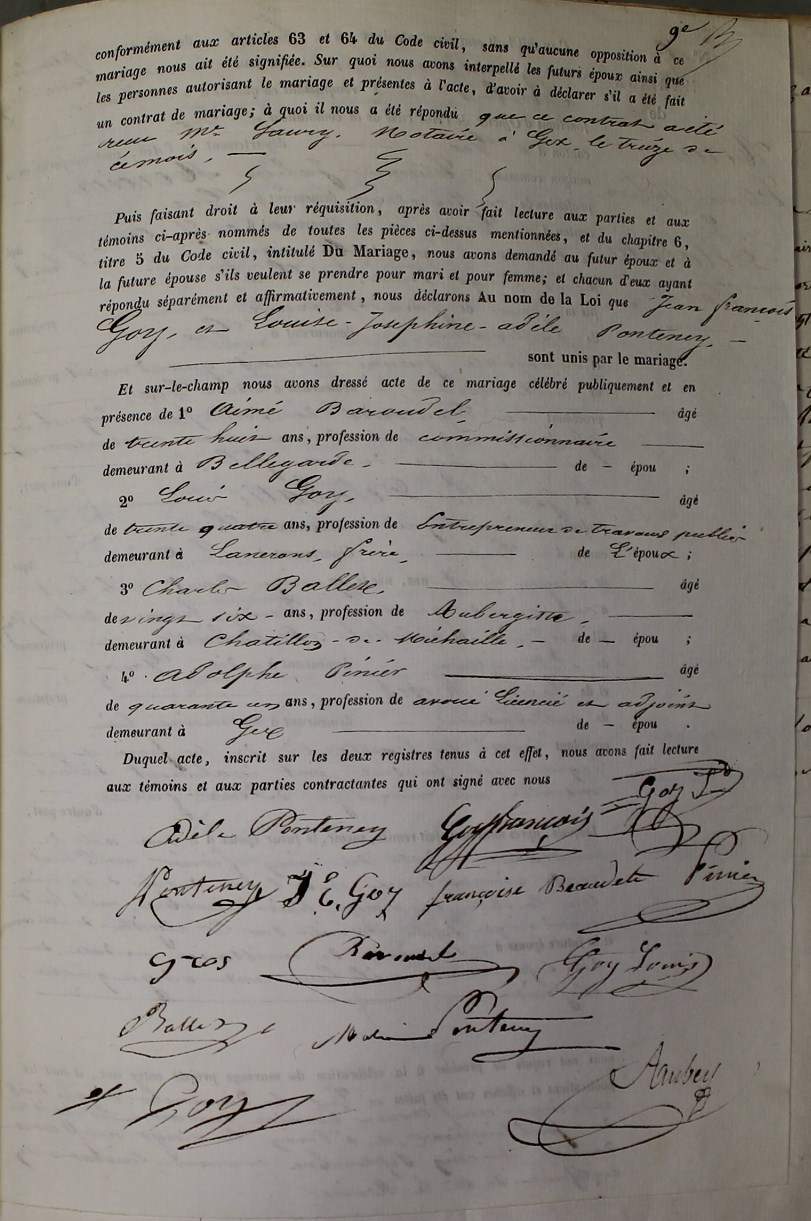 9e
conformément aux articles 63 et 64 du Code civil, sans qu'aucune opposition à ce
mariage nous ait été signifiée. Sur quoi nous avons interpellé les futurs époux ainsi que
les personnes autorisant le mariage et présentes à l'acte, d'avoir à déclarer s'il a été fait
un contrat de mariage; à quoi il nous a été répondu que ce contrat a été
reçu Mr. Notaire à Gex, le treize de
ce mois. —
Puis faisant droit à leur réquisition, après avoir fait lecture aux parties et aux
témoins ci-après nommés de toutes les pièces ci-dessus mentionnées, et du chapitre 6,
titre 5 du Code civil, intitulé Du Mariage, nous avons demandé au futur époux et à
la future épouse s'ils veulent se prendre pour mari et pour femme; et chacun d'eux ayant
répondu séparément et affirmativement, nous déclarons Au nom de la Loi que Jean françois
Goy, et Louise-Josephine-adèle Ponteney, —
sont unis par le mariage.
Et sur-le-champ nous avons dressé acte de ce mariage célébré publiquement et en
présence de 1° Aimé Baroudel, — âgé
de trente huit ans, profession de commissionnaire —
demeurant à Bellegarde, — de — épou ;
2° Louis Goy, — âgé
de trente quatre ans, profession de Entrepreneur de travaux publics
demeurant à Lanerans, frère, — de L'époux ;
3° Charles Ballex, — âgé
de vingt six - ans, profession de Aubergiste, —
demeurant à Chatillon-de-Michaille, — de — épou ;
4° adolphe Pinier — âgé
de quarante un ans, profession de avoué Licencié et adjoint
demeurant à Gex — de — épou .
Duquel acte, inscrit sur les deux registres tenus à cet effet, nous avons fait lecture
aux témoins et aux parties contractantes qui ont signé avec nous
Adèle Ponteney Goy françois Goy
Ponteney Goy françoise Beaudet Pinier
gros Goy Louis
Ballex Ponteney
Goy